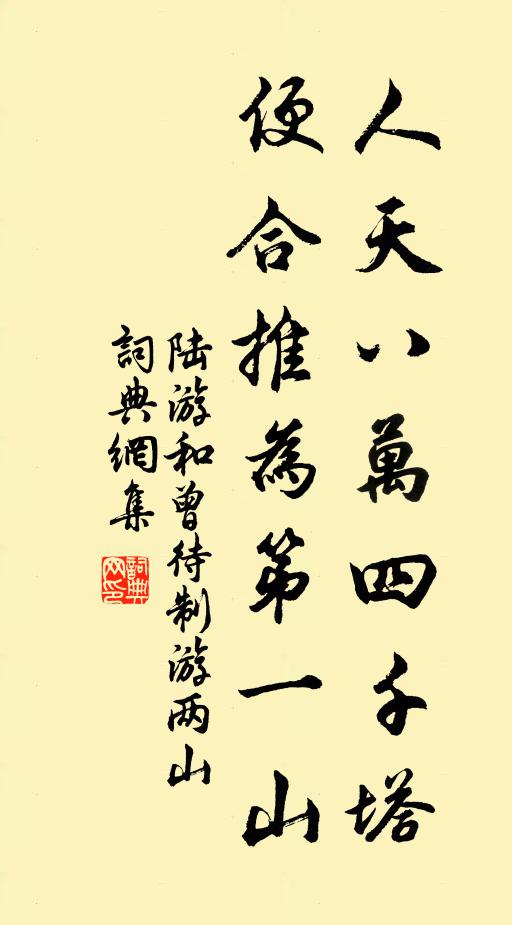 人天八萬四千塔
便合推為第一山
陸游和曾待制游两山
詞典網集
詞典网印